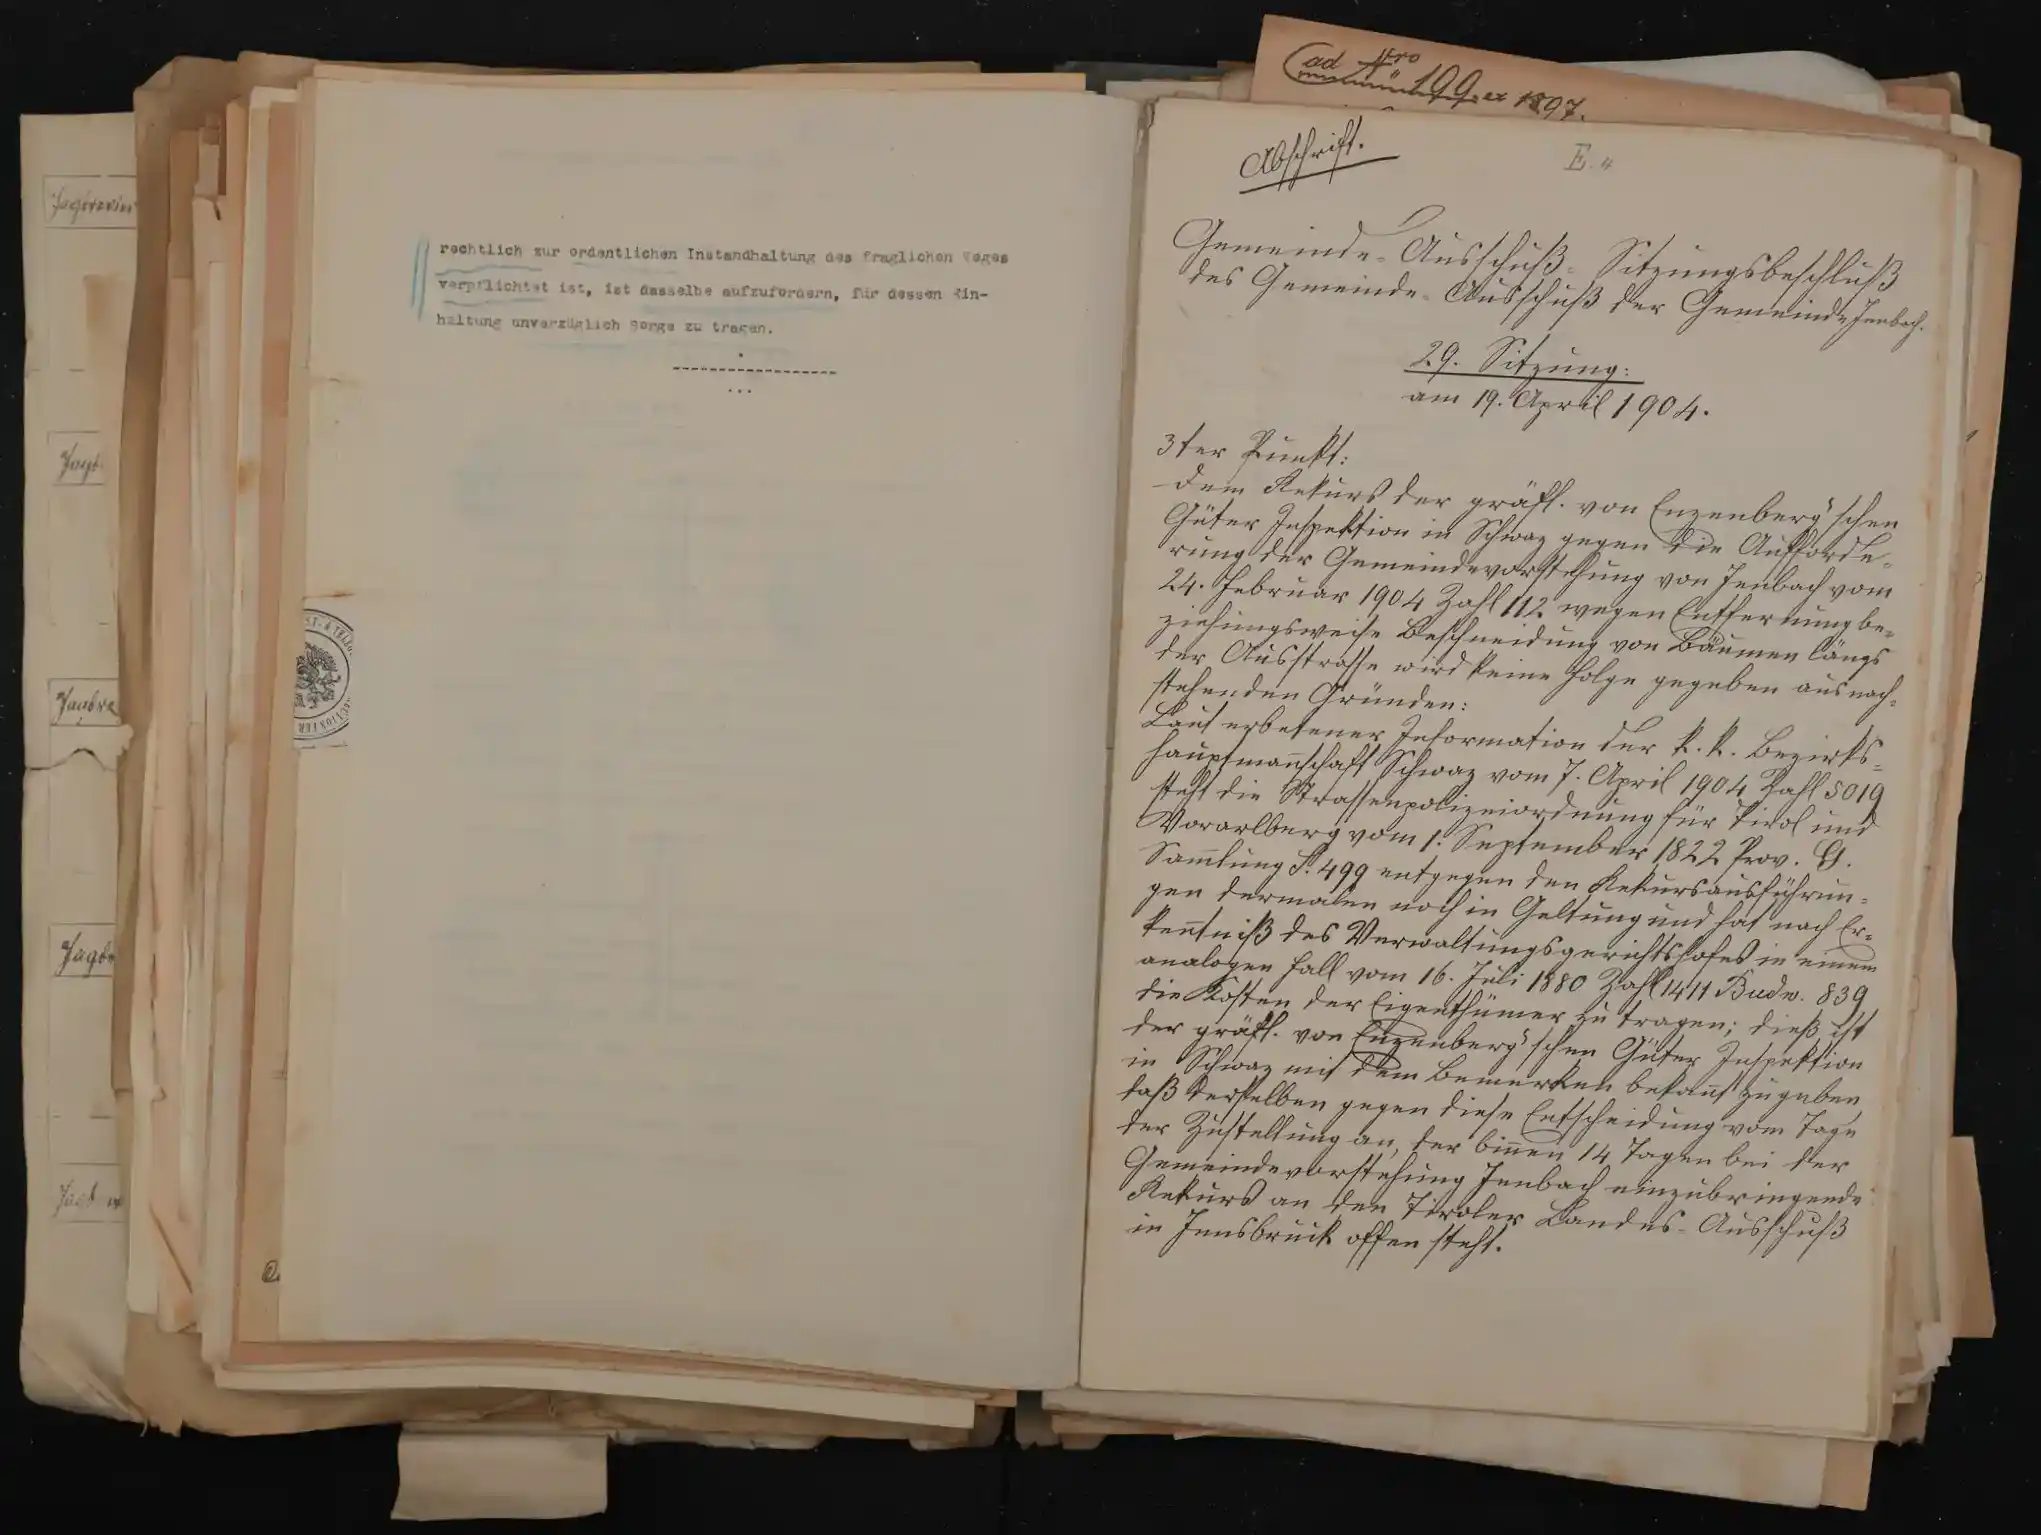 Jagdrevier
rechtlich zur ordentlichen Instandhaltung des fraglichen Weges
verpflichtet ist, ist dasselbe aufzufordern, für dessen Ein-
haltung unverzüglich Sorge zu tragen.
ad Nro
199 ex 1897.
Abschrift.
E.
Gemeinde-Ausschuß-Sitzungsbeschluß
des Gemeinde-Ausschuß der Gemeinde Jenbach.
29. Sitzung:
am 19. April 1904.
3ter Punkt:
Dem Rekurs der gräfl. von Enzenberg'schen
Güter Inspektion in Schwaz gegen die Aufforde-
rung der Gemeindevorstehung von Jenbach vom
24. Februar 1904 Zahl 112 wegen Entfernung be-
ziehungsweise Beschneidung von Bäumen längs
der Ausstrasse wird keine Folge gegeben aus nach-
stehenden Gründen:
Laut erbetener Information der k. k. Bezirks-
hauptmannschaft Schwaz vom 7. April 1904 Zahl 5019
steht die Strassenpolizeiordnung für Tirol und
Vorarlberg vom 1. September 1822 Prov. G.
Sammlung S. 499 entgegen den Rekursausführun-
gen dermalen noch in Geltung und hat nach Er-
kenntniß des Verwaltungsgerichtshofes in einem
analogen Fall vom 16. Juli 1880 Zahl 1411 Budw. 839
die Kosten der Eigenthümer zu tragen; dieß ist
der gräfl. von Enzenberg'schen Güter Inspektion
in Schwaz mit dem Bemerken bekannt zu geben,
daß derselben gegen diese Entscheidung vom Tage
der Zustellung an, der binnen 14 Tagen bei der
Gemeindevorstehung Jenbach einzubringende
Rekurs an den Tiroler Landes-Ausschuß
in Innsbruck offen steht.